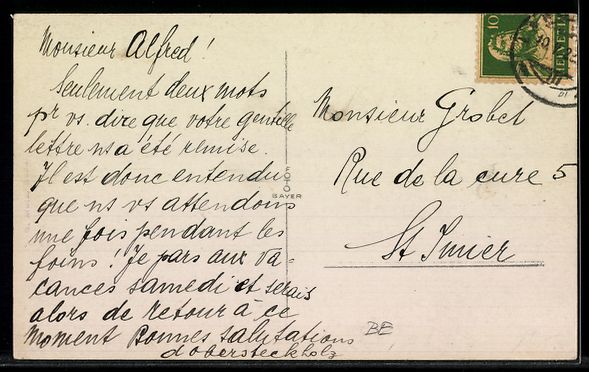 Monsieur Alfred !
Seulement deux mots
pr vs. dire que votre gentille
lettre ns a été remise.
Il est donc entendu
que ns vs attendons
une fois pendant les
foins ! Je pars aux va-
cances samedi et serais
alors de retour à ce
moment Bonnes salutations
d'Obersteckholz
BAYER
10
HELVETIA
Monsieur Grobet
Rue de la cure 5
St Imier
BE